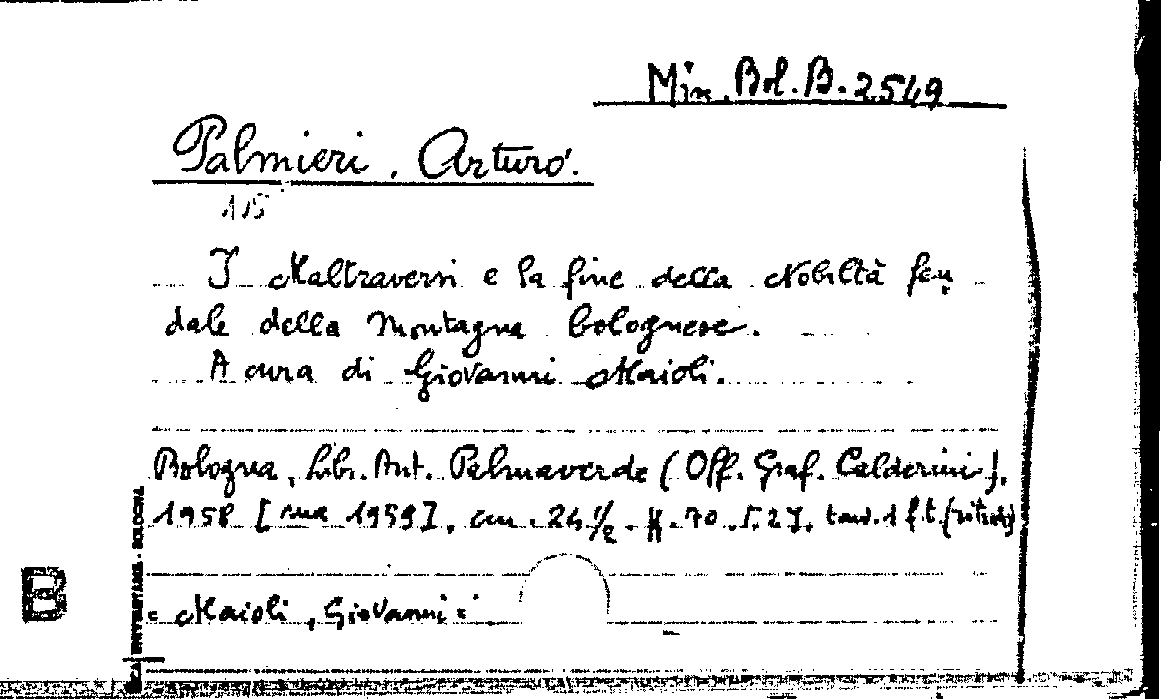 Min. Bol. B. 2549
Palmieri, Arturo.
115
I Maltraversi e la fine della Nobiltà feu
dale della Montagna bolognese.
A cura di Giovanni Maioli.
Bologna, Libr. Ant. Palmaverde (Off. Graf. Calderini),
1958 [ma 1959], cm. 24 1/2. pp. 70. [2]. tav. 1 f.t. (ritr.)
B
: Maioli, Giovanni :